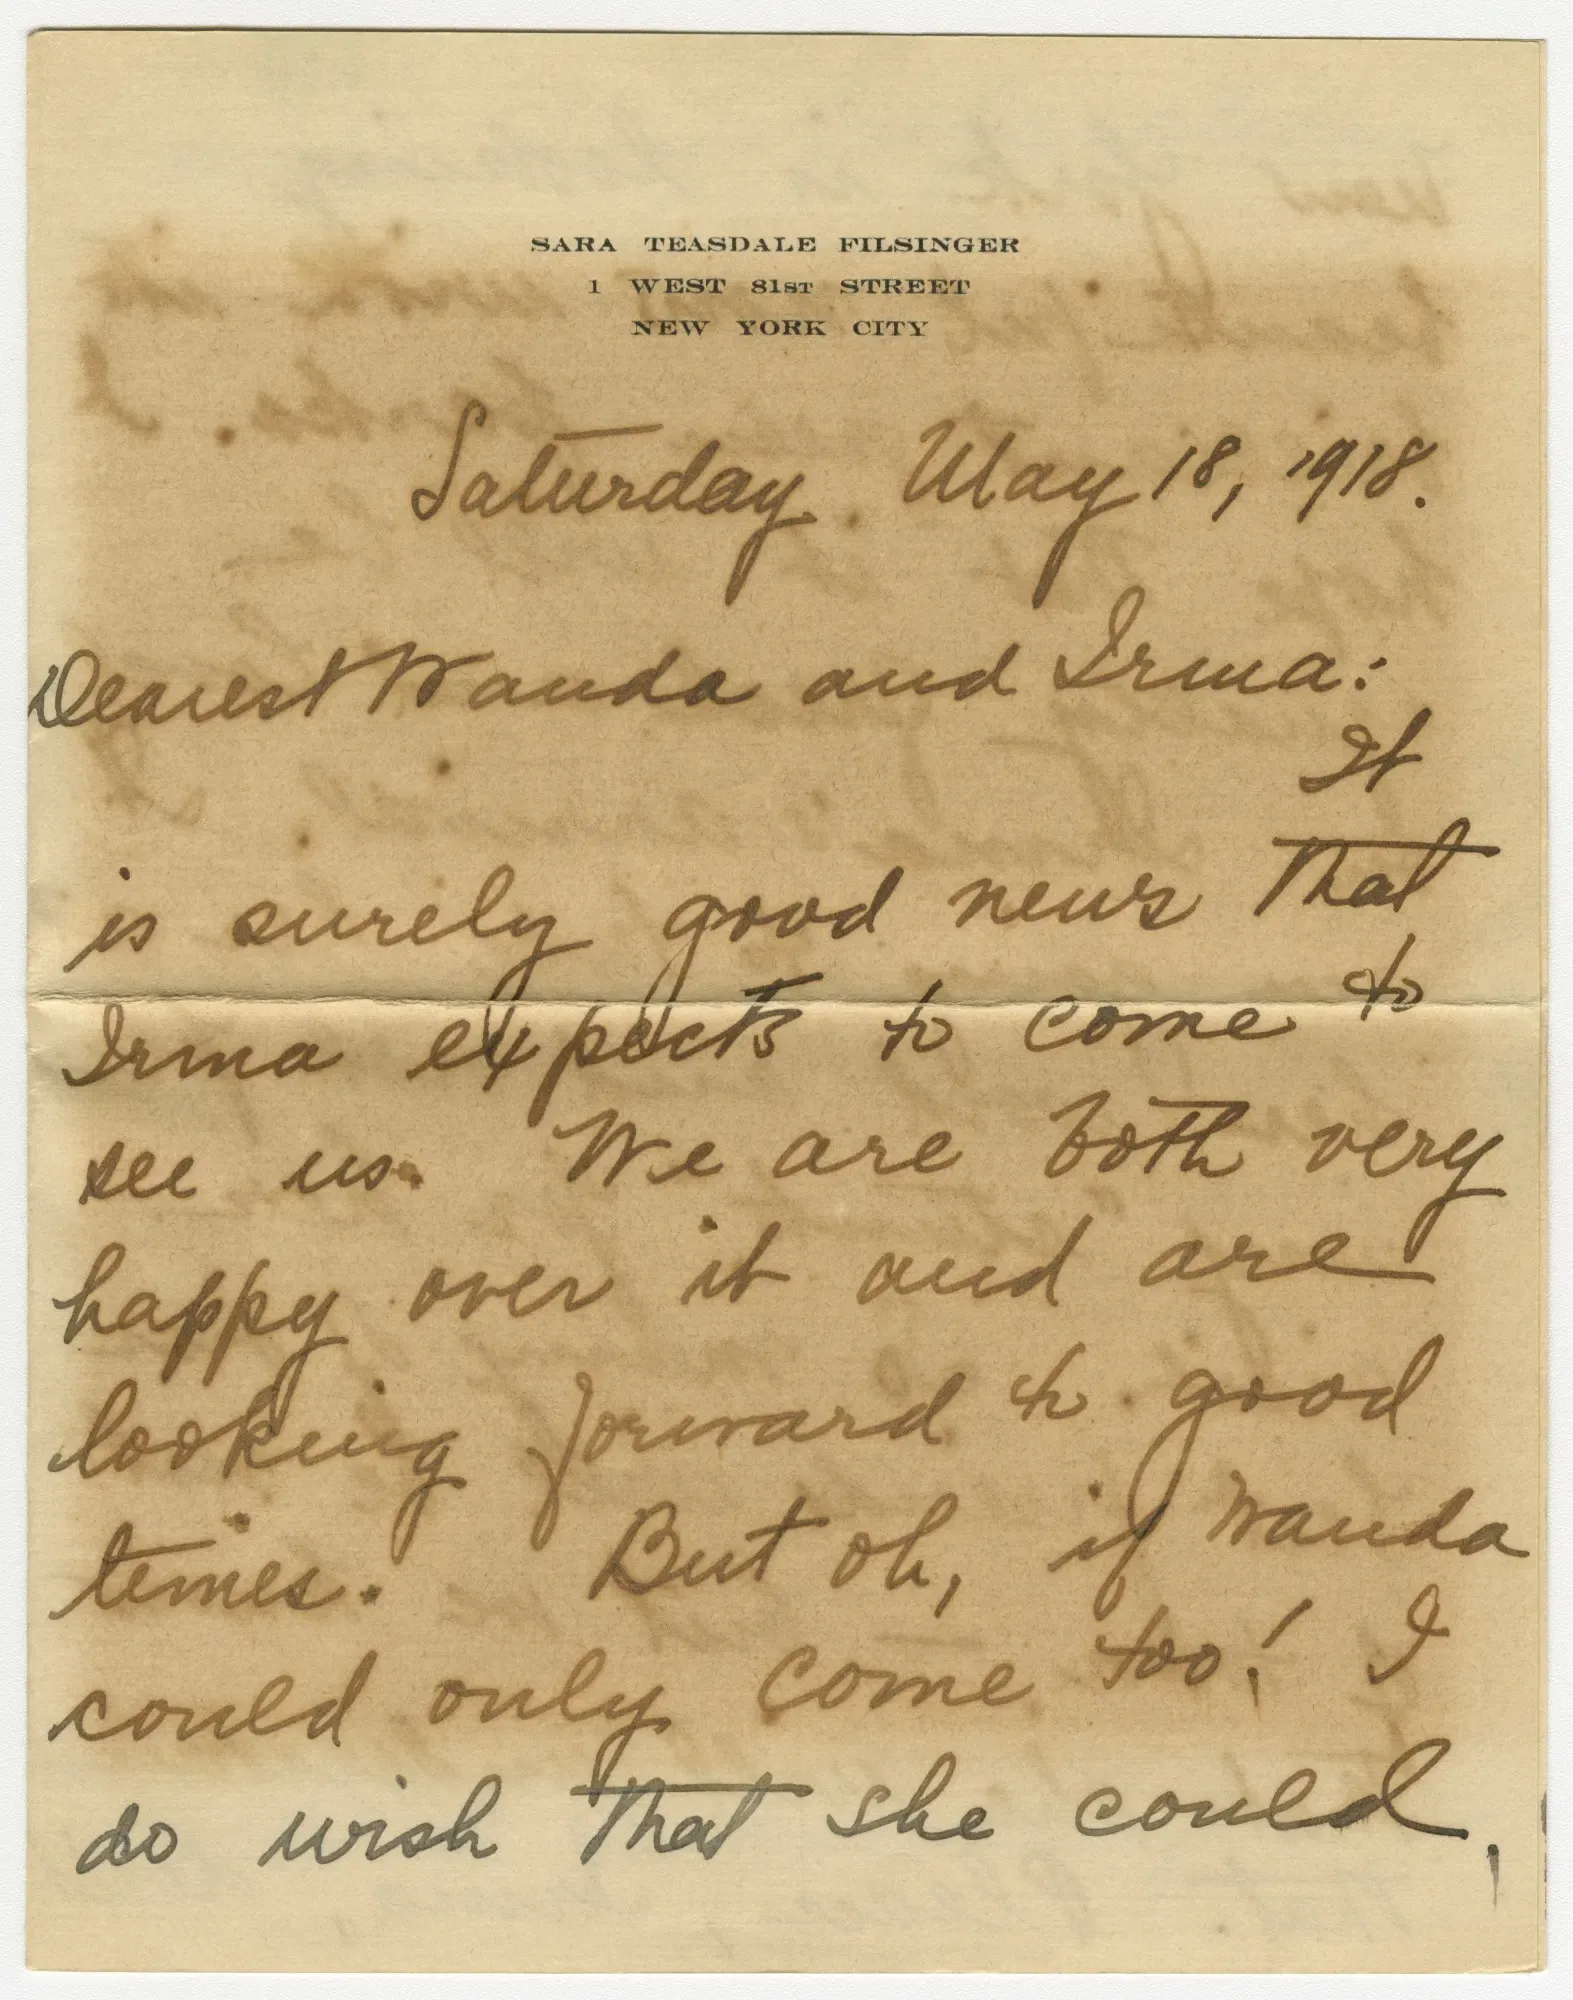 SARA TEASDALE FILSINGER
1 WEST 81ST STREET
NEW YORK CITY
Saturday May 18, 1918.
Dearest Wanda and Irma:
It
is surely good news that
Irma expects to come to
see us. We are both very
happy over it and are
looking forward to good
times. But oh, if Wanda
could only come too! I
do wish that she could,